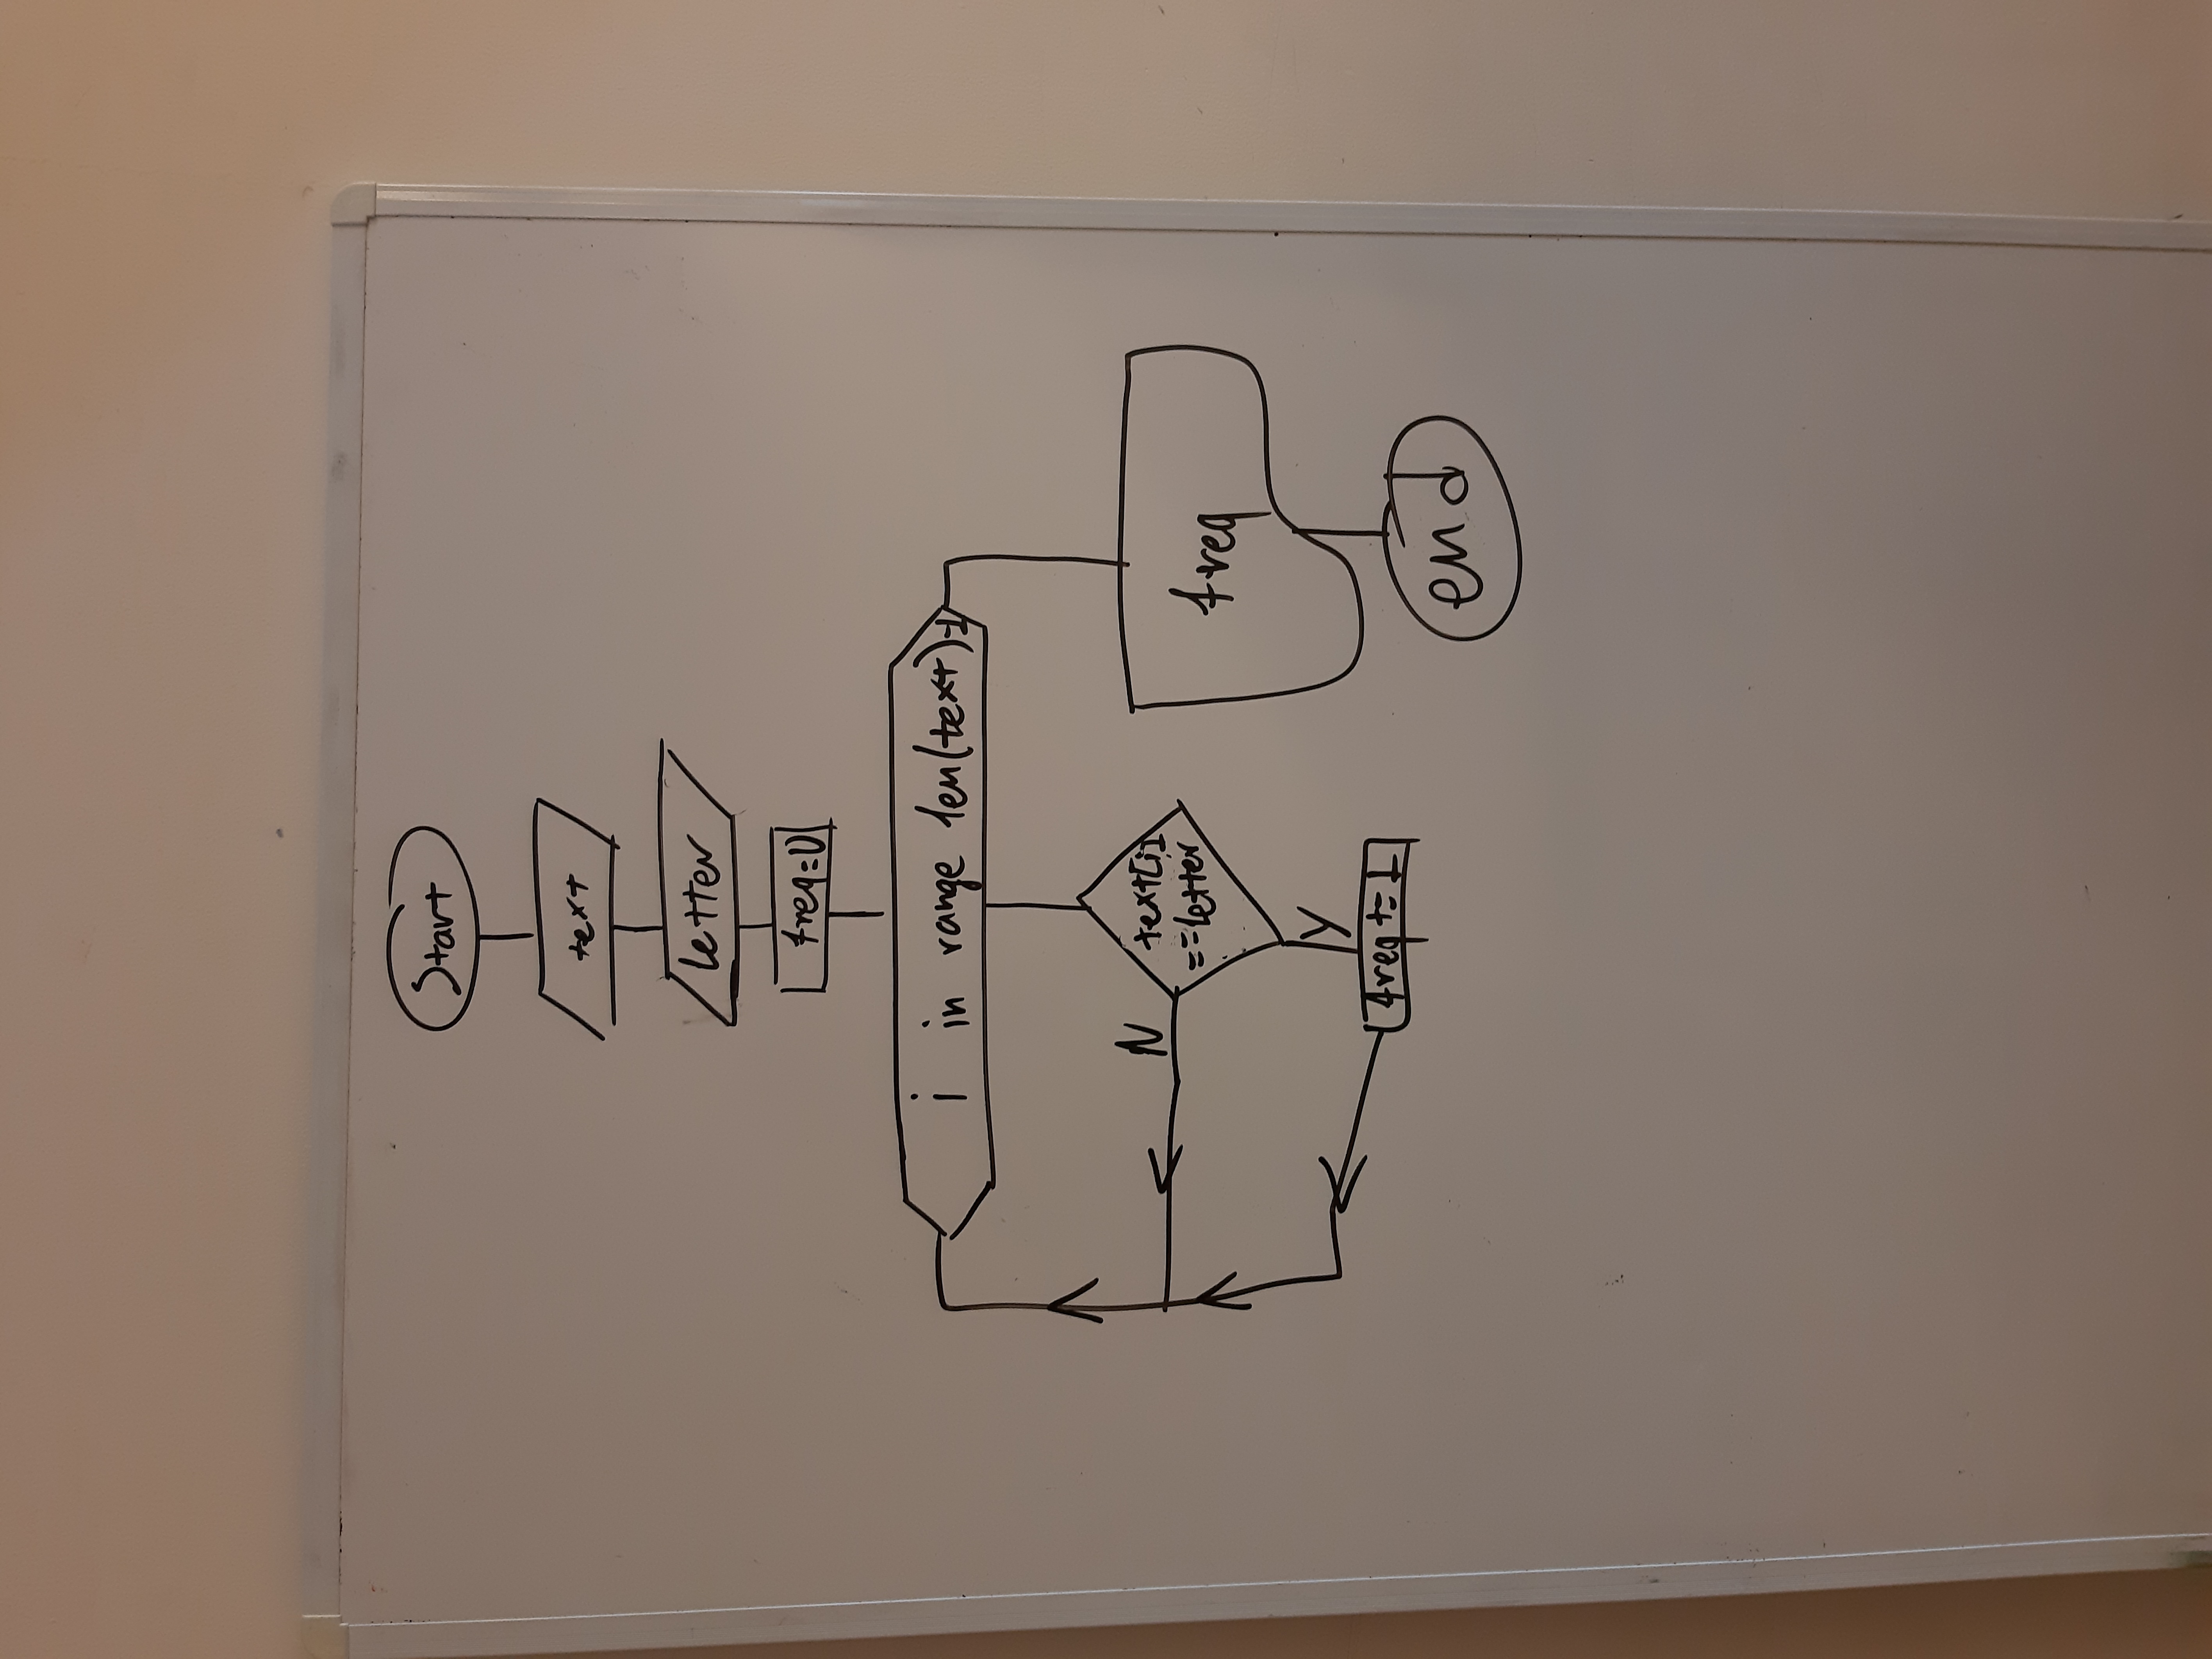 Start
text
letter
freq=0
i in range len(text)-1
N
text[i]
==letter
freq
Y
freq += 1
end